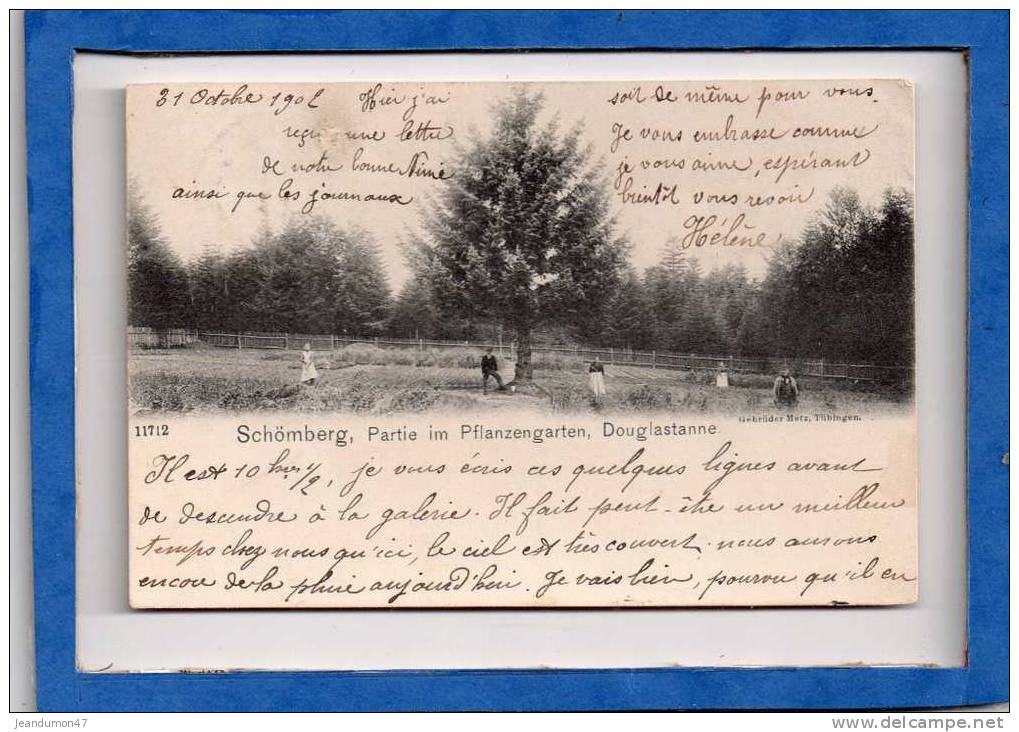 31 Octobre 1902 Hier j'ai
reçu une lettre
de notre bonne Mimie
ainsi que les journaux
Il est 10 hres 1/2, je vous écris ces quelques lignes avant
de descendre à la galerie. Il fait peut-être un meilleur
temps chez nous qu'ici, le ciel est très couvert. nous aurons
encore de la pluie aujourd'hui. Je vais bien, pourvu qu'il en
soit de même pour vous.
Je vous embrasse comme
je vous aime, espérant
bientôt vous revoir
Hélène
Gebrüder Metz, Tübingen.
11712 Schömberg, Partie im Pflanzengarten, Douglastanne
jeandumon47
www.delcampe.net